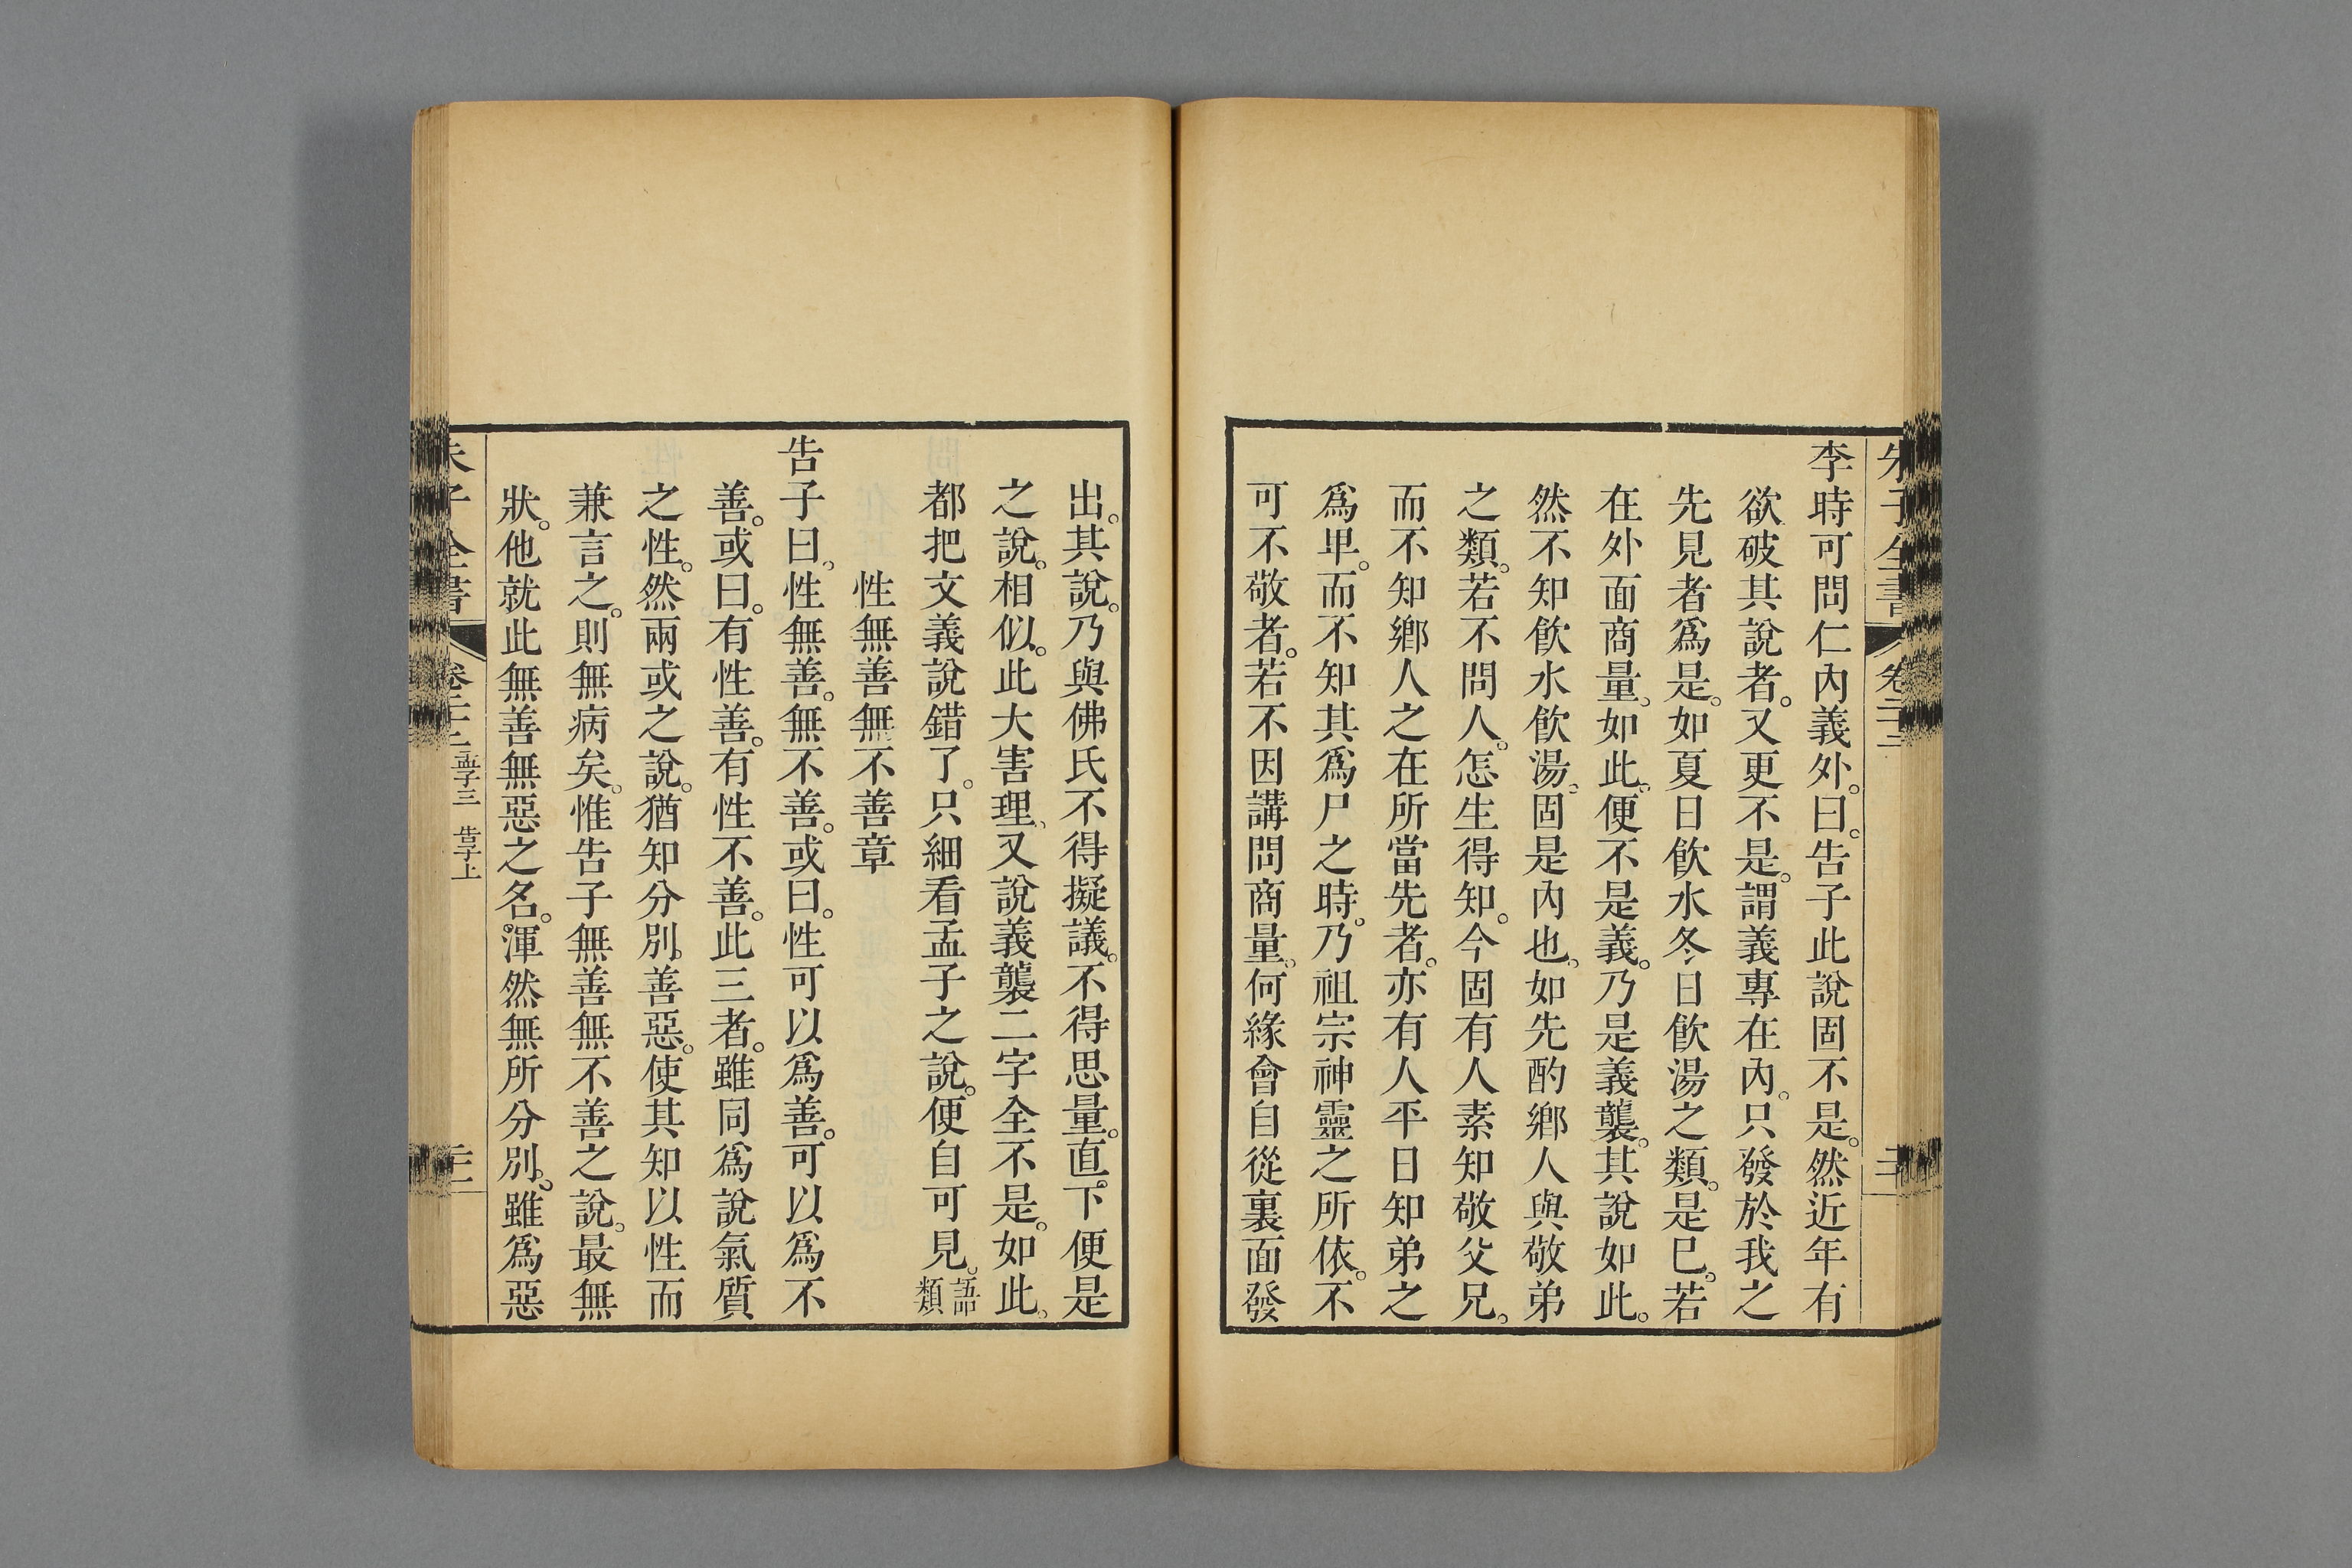 李時可問仁內義外。曰。告子此說固不是。然近年有
欲破其說者。又更不是。謂義專在內。只發於我之
先見者爲是。如夏日飮水冬日飮湯之類。是已。若
在外面商量。如此。便不是義。乃是義襲。其說如此。
然不知飮水飮湯。固是內也。如先酌鄕人與敬弟
之類。若不問人。怎生得知。今固有人素知敬父兄。
而不知鄕人之在所當先者。亦有人平日知弟之
爲卑。而不知其爲尸之時。乃祖宗神靈之所依。不
可不敬者。若不因講問商量。何緣會自從裏面發
出。其說。乃與佛氏不得擬議。不得思量。直下便是
之說。相似。此大害理。又說義襲二字全不是。如此。
都把文義說錯了。只細看孟子之說。便自可見。語類
性無善無不善章
告子曰。性無善。無不善。或曰。性可以爲善。可以爲不
善。或曰。有性善。有性不善。此三者。雖同爲說氣質
之性。然兩或之說。猶知分別。善惡。使其知以性而
兼言之。則無病矣。惟告子無善無不善之說。最無
狀。他就此無善無惡之名。渾然無所分別。雖爲惡
孟子三 告子上